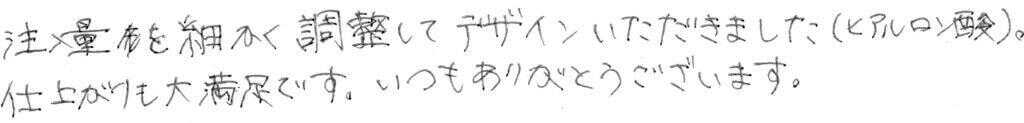 注入量など細かく調整してデザインいただきました(ヒアルロン酸)。
仕上がりも大満足です。いつもありがとうございます。